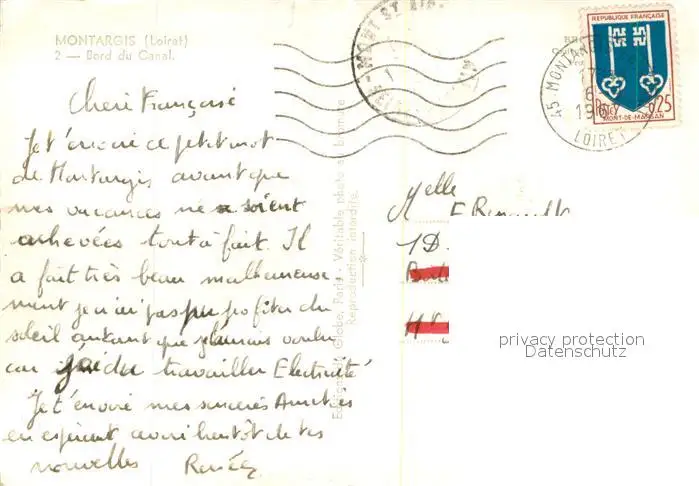 MONTARGIS (Loiret)
2 — Bord du Canal.
Cheré Françoise
Je t'envoie ce petit mot
de Montargis avant que
mes vacances ne soient
achevées tout à fait. Il
a fait très beau malheureuse
ment je n'ai pas pu profiter du
soleil autant que j'aurais voulu
car j'ai du travailler Electricité
Je t'envoie mes sincères Amitiés
en espérant avoir bientôt de tes
nouvelles Renée
Globe, Paris - Véritable photo au bromure
Reproduction interdite.
REPUBLIQUE FRANÇAISE
0,25
MONT-DE-MARSAN
45 MONTARGIS
17
6
LOIRET
Melle
1D.
privacy protection
Datenschutz